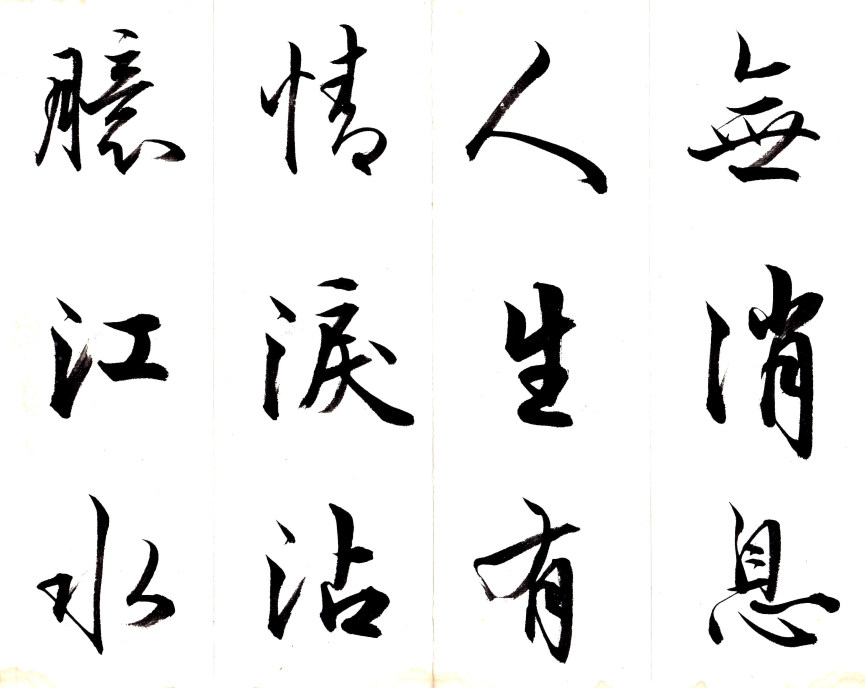 無消息
人生有
情淚沾
臆江水